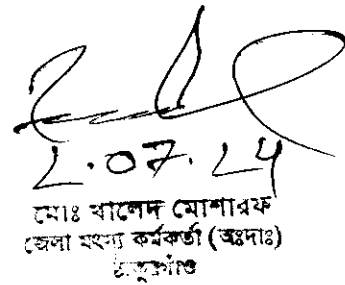 ২.০7.২4
মোঃ খালেদ মোশাররফ
জেলা মৎস্য কর্মকর্তা (অঃদাঃ)
ঠাকুরগাঁও